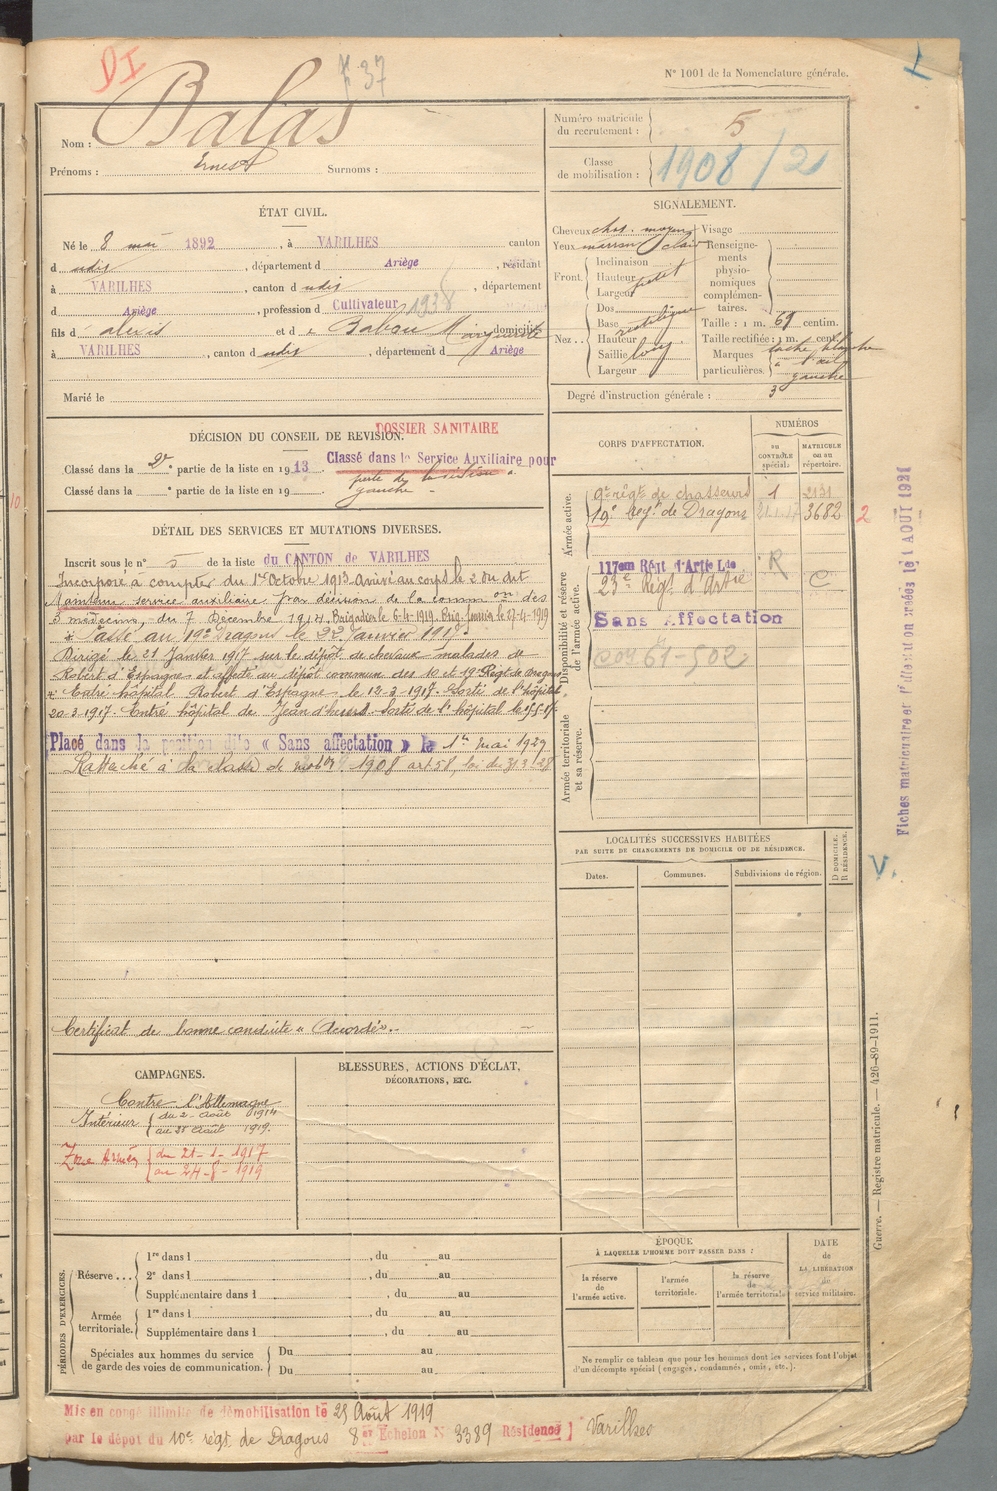 DI
N° 1001 de la Nomenclature générale.
Nom : Balas
Prénoms : Ernest Surnoms :
Numéro matricule du recrutement : 5
Classe de mobilisation : 1908/2
ÉTAT CIVIL.
Né le 8 mai 1892, à VARILHES canton
d udit, département d Ariège, résidant
à VARILHES, canton d udit, département
d Ariège, profession d Cultivateur 1938
fils d' Alexis et d e Babou Marguerite domicilié
à VARILHES, canton d udit, département d Ariège
Marié le
SIGNALEMENT.
Cheveux chat. moyen Visage
Yeux marron clair
Front Inclinaison
Hauteur petit
Largeur
Nez .. Dos
Base rectiligne
Hauteur
Saillie long
Largeur
Renseignements physionomiques complémentaires.
Taille : 1 m. 69 centim.
Taille rectifiée : 1 m. cent.
Marques particulières. tache blanche à l'œil gauche
Degré d'instruction générale : 3
DÉCISION DU CONSEIL DE REVISION.
DOSSIER SANITAIRE
Classé dans la 2e partie de la liste en 1913 Classé dans le Service Auxiliaire pour
perte de la vision à gauche
Classé dans la ° partie de la liste en 19
DÉTAIL DES SERVICES ET MUTATIONS DIVERSES.
Inscrit sous le n° 5 de la liste du CANTON de VARILHES
Incorporé à compter du 1er Octobre 1913 Arrivé au corps le 2 du dit
Maintenu service auxiliaire par décision de la common des
3 médecins, du 7 Décembre 1914. Brigadier le 6-4-1919. Brig. fourrier le 27-4-1919
Passé au 19e Dragons le 22 Janvier 1917.
Dirigé le 21 Janvier 1917 sur le dépôt de chevaux malades de
Robert d'Espagne et affecté au dépôt commun des 10 et 19e Régt de Dragons
Entré hôpital Robert d'Espagne le 12-3-1917. Sorti de l'hôpital
20-3-1917. Entré hôpital de Jean d'heurs. Sorti de l'hôpital le
Placé dans la position dite « Sans affectation » le 1er mai 1929
Rattaché à la classe de mobon 1908 art 58, loi du 31.3.28
Certificat de bonne conduite « Accordé ».
CORPS D'AFFECTATION.
NUMÉROS
au CONTRÔLE spécial.
MATRICULE ou au répertoire.
Armée active.
9e régt de chasseurs 1 2131
19e Régt de Dragons 3682 2
Disponibilité et réserve de l'armée active.
117em Régt d'Artie Lde R
23e Régt d'Artie C
Sans Affectation
Armée territoriale et sa réserve.
LOCALITÉS SUCCESSIVES HABITÉES
PAR SUITE DE CHANGEMENTS DE DOMICILE OU DE RÉSIDENCE.
Dates. Communes. Subdivisions de région. D DOMICILE. R RÉSIDENCE.
CAMPAGNES.
Contre l'Allemagne
Intérieur du 2 Août 1914
au 25 Août 1919.
Zone Armées du 21-1-1917
BLESSURES, ACTIONS D'ÉCLAT,
DÉCORATIONS, ETC.
PÉRIODES D'EXERCICES.
Réserve ... 1re dans l , du au
2e dans l , du au
Supplémentaire dans l , du au
Armée territoriale. 1re dans l , du au
Supplémentaire dans l , du au
Spéciales aux hommes du service de garde des voies de communication. Du au
Du au
ÉPOQUE
À LAQUELLE L'HOMME DOIT PASSER DANS :
la réserve de l'armée active. l'armée territoriale. la réserve de l'armée territoriale
DATE de LA LIBÉRATION du service militaire.
Ne remplir ce tableau que pour les hommes dont les services font l'objet
d'un décompte spécial (engagés, condamnés, omis, etc.).
Mis en congé illimité de démobilisation le 25 Août 1919
par le dépôt du 10e régt de Dragons 8e Echelon N° 3389 Résidence Varilhes
Guerre. — Registre matricule. — 426-89-1911.